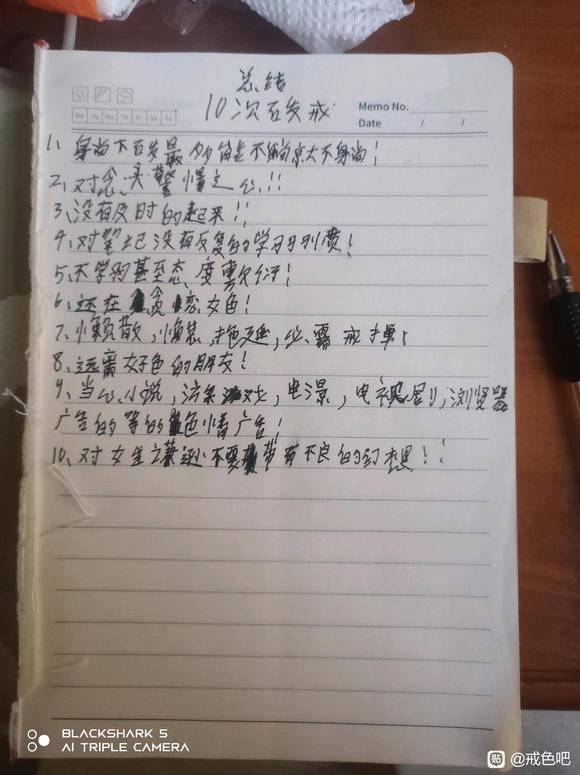 总结
10次破戒
Memo No.
Mo Tu We Th Fr Sa Su
Date / /
1、身 下 最 不 大不身 !
2、对念头警惕之心!!
3、没有及时的起来!!
4、对笔记没有反复的学习习惯!
5、不学习甚至态度敷衍!
6、还在贪恋女色!
7、懒散,拖延,戒
8、远离好色的朋友!
9、当心小说,游戏,电影,电视剧,浏览器
广告的等的色情广告!
10、对女生 不要带有不良的幻想!!
BLACKSHARK 5
AI TRIPLE CAMERA
贴 @戒色吧